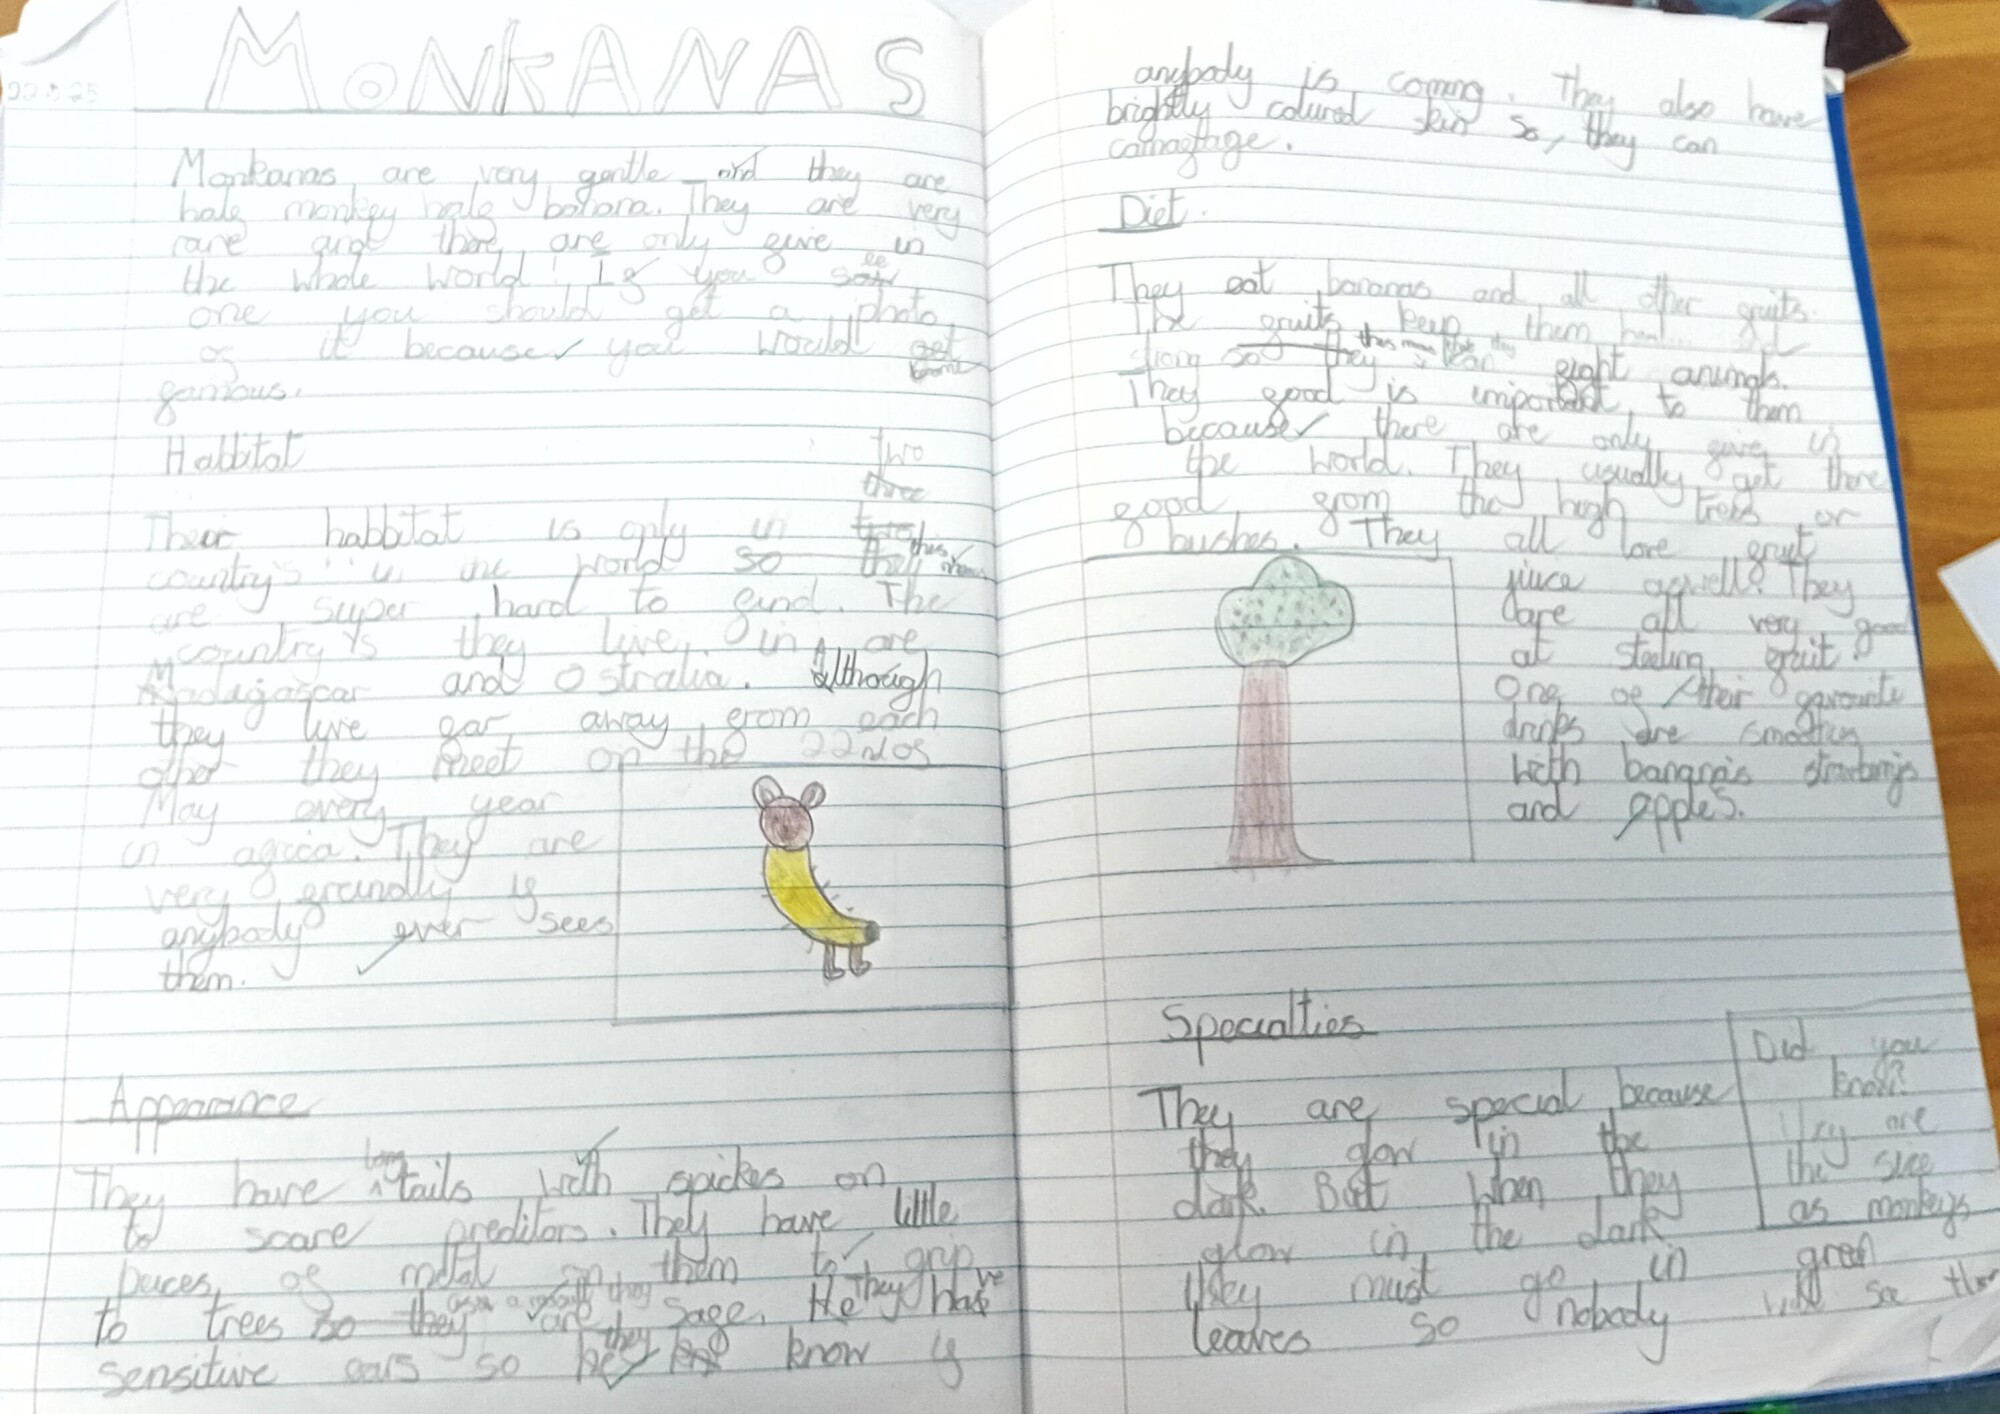 MONKANAS
22.5.25
Monkanas are very gentle and they are
half monkey half banana. They are very
rare and there are only five in
the whole world! If you see
one you should get a photo
of it because you would
become
famous.
Habbitat
two
three
Their habbitat is only in
country's in the world so this means they
are super hard to find. The
country's they live in are
Madagascar and Ostralia. Although
they live far away from each
other they meet on the 22nd of
May every year
in africa. They are
very friendly if
anybody ever sees
them.
Appearance
They have long tails with spickes on
to scare preditors. They have little
peices of metal on them to grip
to trees so they as a result they are safe. He They have
sensitive ears so they know if
anybody is coming. They also have
brightly coloured skin so, they can
camagfage.
Diet.
They eat bananas and all other fruits.
The fruits keep them
strong so they this means that they can fight animals.
They food is important to them
because there are only five in
the world. They usually get there
food from the high trees or
bushes. They all love fruit
jiuce aswell? They
are all very good
at stealing fruit.
One of their favourite
drinks are smoothies
with banana's strawberrys
and apples.
Specialties
They are special because
they glow in the
dark. But when they
glow in the dark
they must go in green
leaves so nobody will see them
Did you
know?
They are
the size
as monkeys